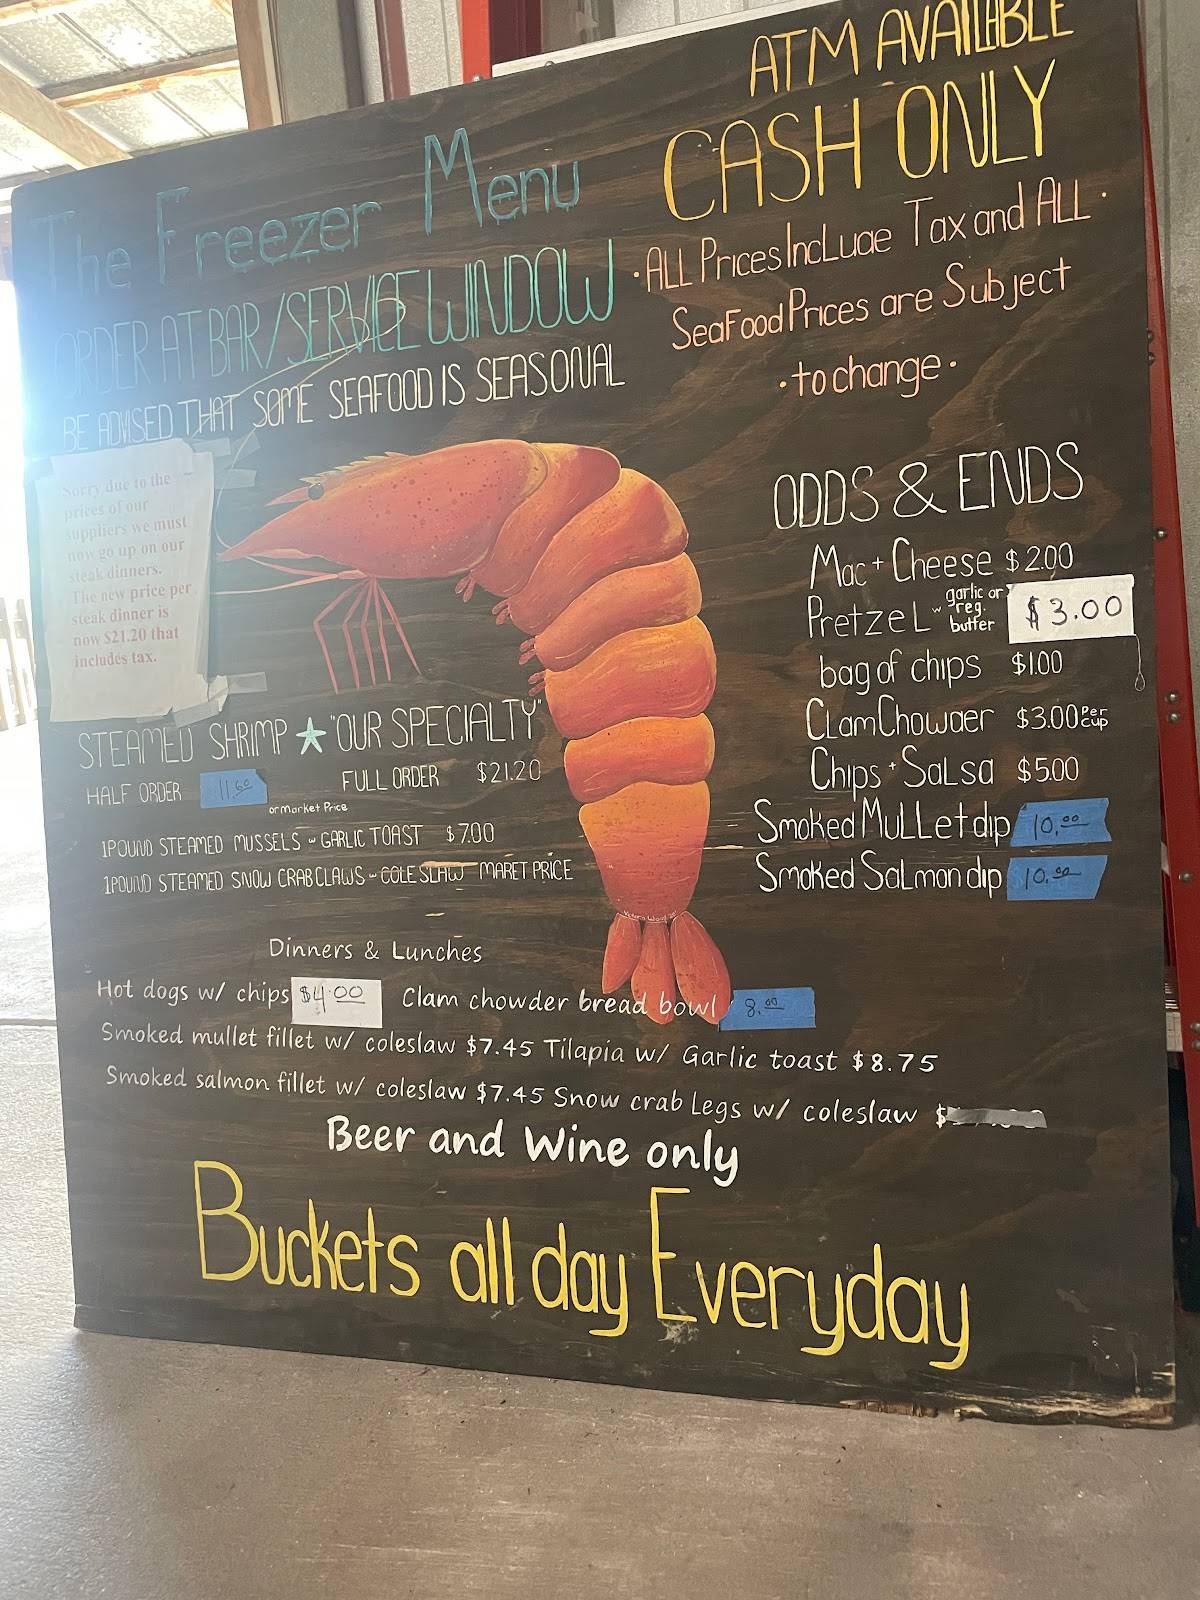 ATM AVAILABLE
CASH ONLY
· ALL Prices Include Tax and ALL ·
SeaFood Prices are Subject
· to change ·
The Freezer Menu
ORDER AT BAR/SERVICE WINDOW
BE ADVISED THAT SOME SEAFOOD IS SEASONAL
Sorry due to the
prices of our
suppliers we must
now go up on our
steak dinners.
The new price per
steak dinner is
now $21.20 that
includes tax.
STEAMED SHRIMP "OUR SPECIALTY"
HALF ORDER 11.60 FULL ORDER $21.20
or Market Price
1 POUND STEAMED MUSSELS w GARLIC TOAST $7.00
1 POUND STEAMED SNOW CRAB CLAWS w COLE SLAW MARET PRICE
ODDS & ENDS
Mac + Cheese $2.00
Pretzel w garlic or reg. butter $3.00
bag of chips $1.00
Clam Chowder $3.00 Per Cup
Chips + Salsa $5.00
Smoked Mullet dip 10.00
Smoked Salmon dip 10.00
Dinners & Lunches
Hot dogs w/ chips $4.00 Clam chowder bread bowl 8.00
Smoked mullet fillet w/ coleslaw $7.45 Tilapia w/ Garlic toast $8.75
Smoked salmon fillet w/ coleslaw $7.45 Snow crab Legs w/ coleslaw $
Beer and Wine only
Buckets all day Everyday